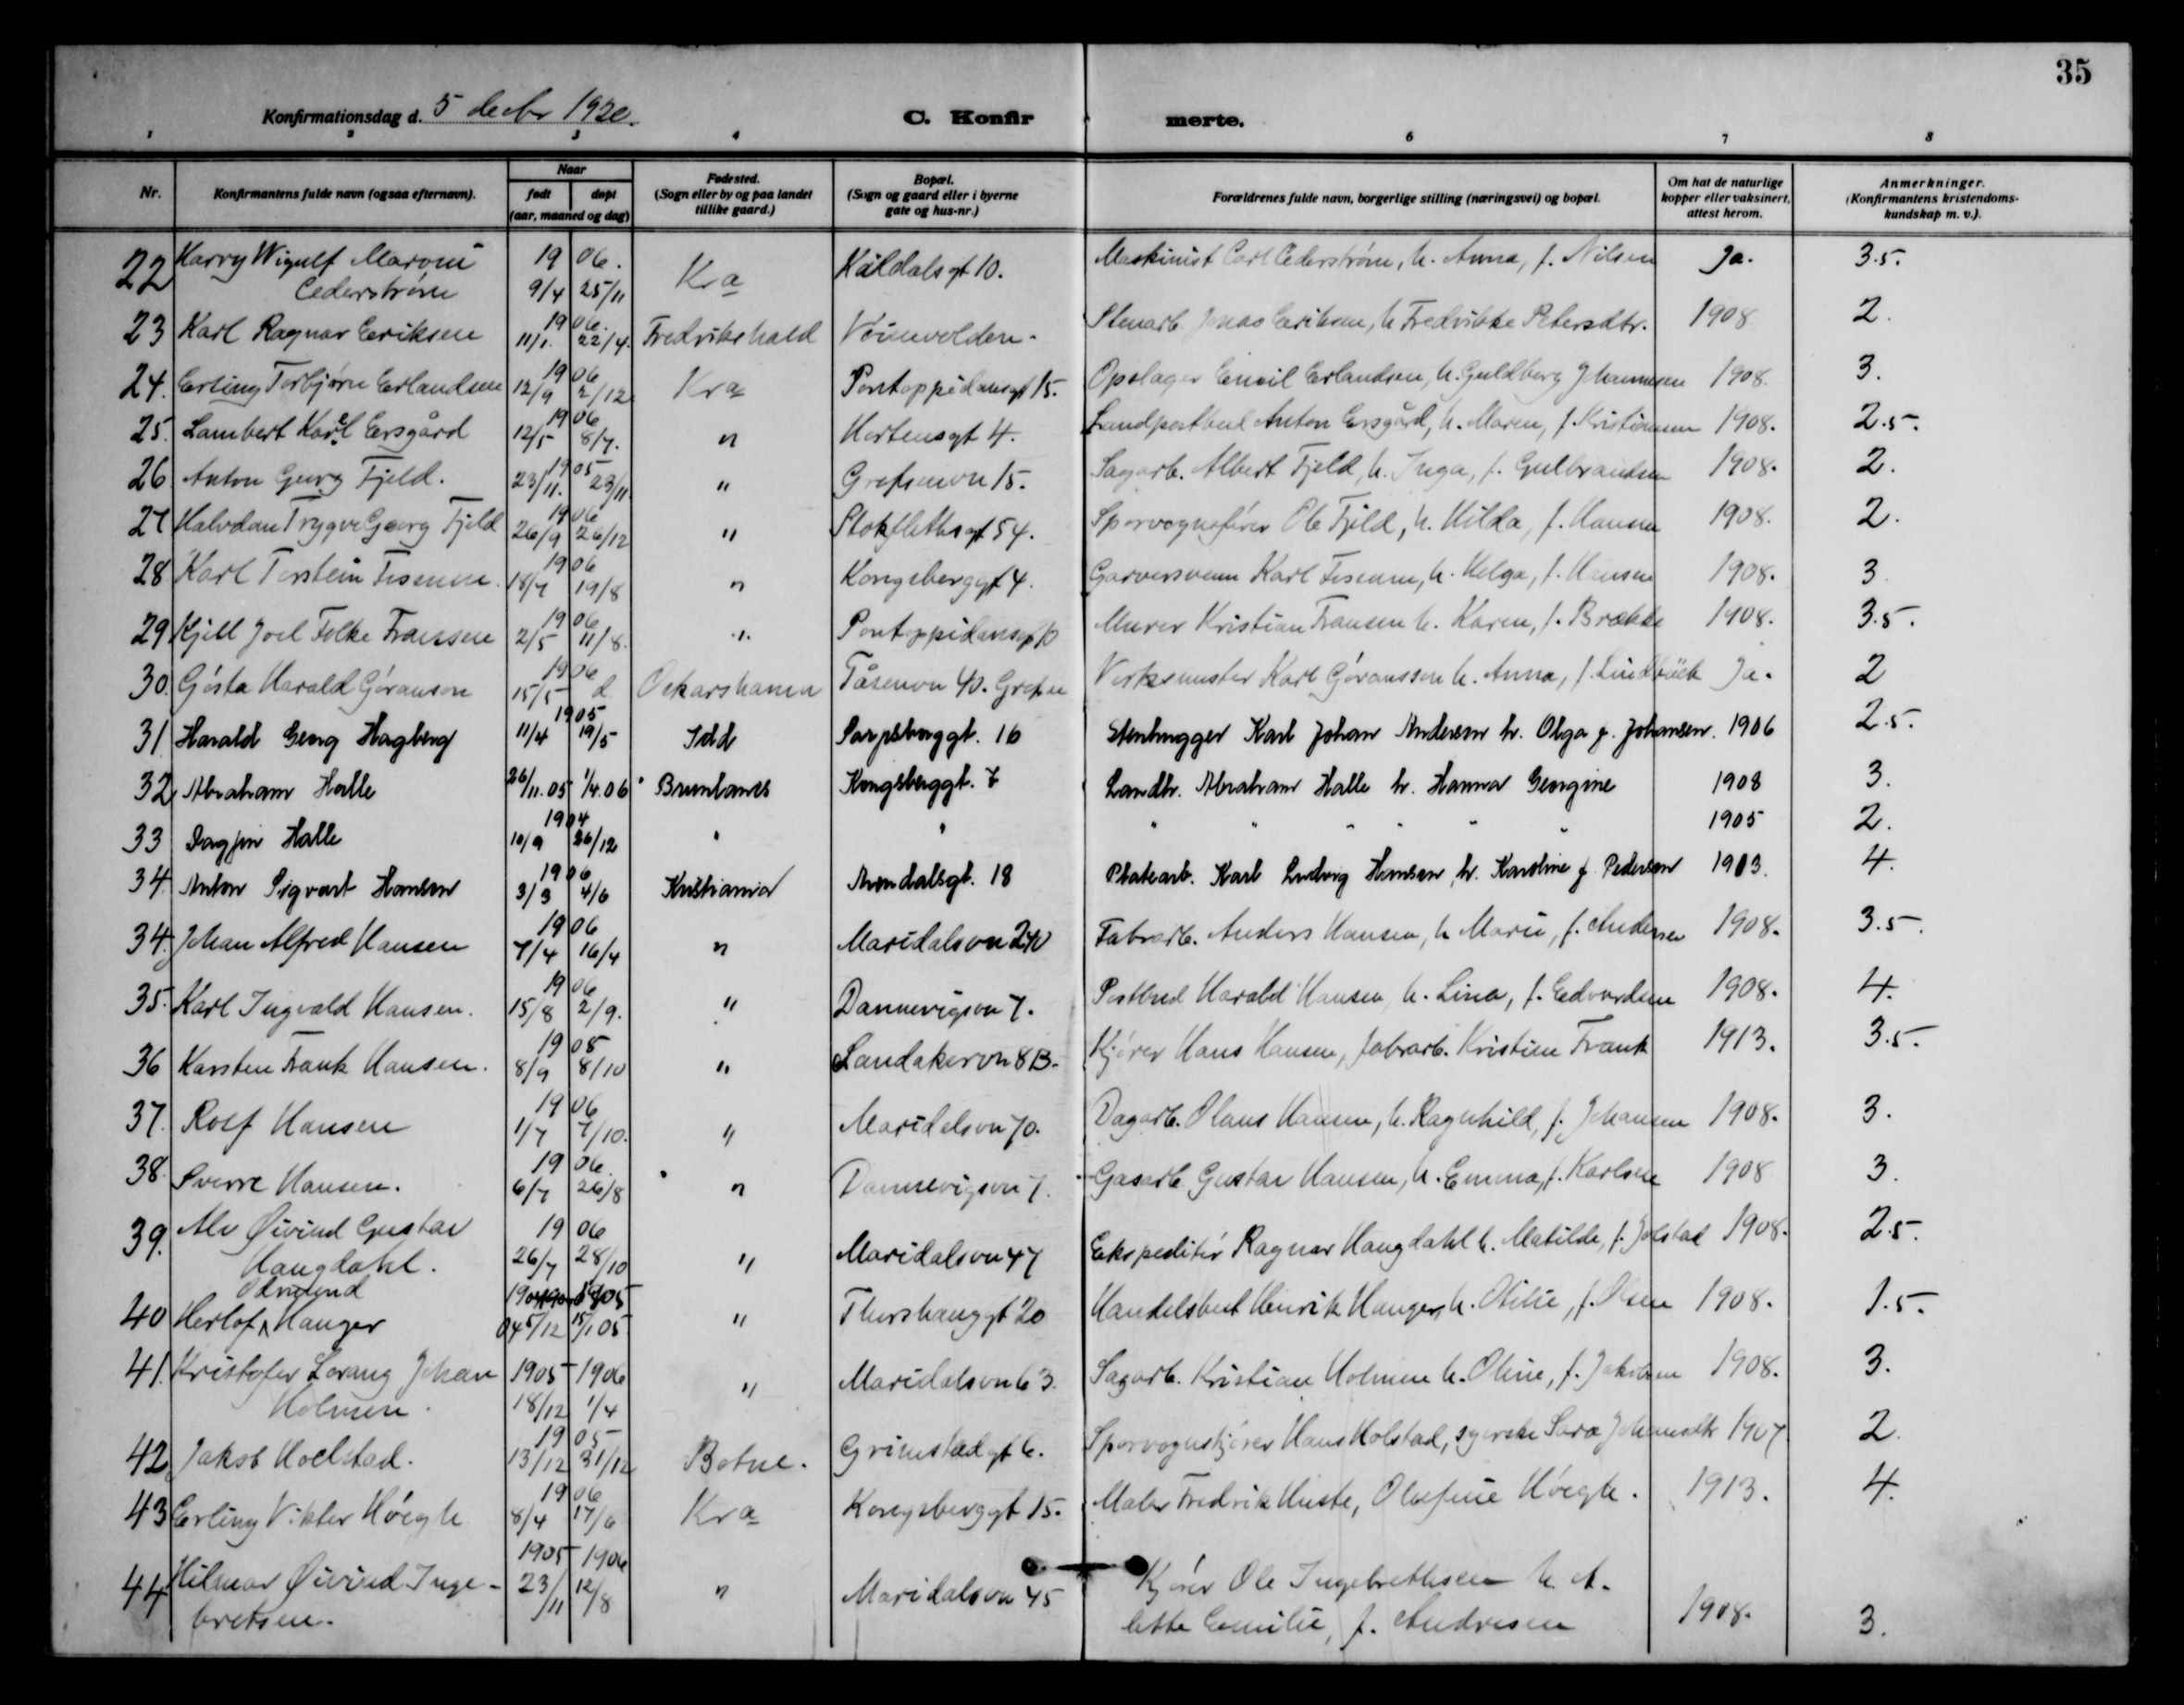 35
Konfirmationsdag d. 5 decbr 1920.
C. Konfir merte.
1 2 3 4 6 7 8
Nr.
Konfirmantens fulde navn (ogsaa efternavn).
Naar
født døpt
(aar, maaned og dag)
Fødested.
(Sogn eller by og paa landet
tillike gaard.)
Bopæl.
(Sogn og gaard eller i byerne
gate og hus-nr.)
Forældrenes fulde navn, borgerlige stilling (næringsvei) og bopæl.
Om hat de naturlige
kopper eller vaksinert,
attest herom.
Anmerkninger.
(Konfirmantens kristendoms-
kundskap m. v.).
22 Harry Wigulf 19 06. Kra Kildalsgt 10. Maskinist Carl Cederstrøm, h. Anna, f. Nilsen Ja. 3.5.
Cederstrøm 9/4 25/11
1906.
23 Karl Ragnar Eriksen 11/1. 22/4. Fredrikshald Voienvolden. Stenarb. Jonas Eriksen, h Fredrikke Petersdtr. 1908 2.
1906
24. Erling Torbjørn Erlandsen 12/9 2/12 Kra Pontoppidansgt 15. Opslager Emil Erlandsen, h. Guldborg Johannesen 1908. 3.
1906
25. Lambert Karel Ersgård 12/5 8/7. " Hortensgt 4. Landpostbud Anton Ersgård, h. Maren, f. Kristiansen 1908. 2.5.
1905
26 Anton Georg Fjeld. 23/11. 23/11 " Grefsenvn 15. Sagarb. Albert Fjeld, h. Inga, f. Gulbrandsen 1908. 2.
1906
27 Halvdan Trygve Georg Fjeld 26/9 26/12 " Stokflethsgt 54. Sporvognsfører Ole Fjeld, h. Hilda, f. Hansen 1908. 2.
1906
28 Karl Torstein Fossum. 18/7 19/8 " Kongsberggt 4. Garversvenn Karl Fossum, h. Helga, f. Hansen 1908. 3
1906
29 Kjell Joel Folke Franssen 2/5 11/8. " Pontoppidansgt 10 Murer Kristian Fransen h. Karen, f. Brække 1908. 3.5.
1906
30. Gösta Harald Göranson 15/5 d. Oskarshamn Tåsenvn 40. Grefsen Verksmester Karl Göransson h. Anna, f. Lindbäck Ja. 2
1905
31 Harald Georg Hagberg 11/4 19/5 Idd Sarpsborggt. 16 Stenhugger Karl Johan Andersen h. Olga f. Johansen. 1906 2.5.
32 Abraham Halle 26/11.05 1/4.06 Brunlanes Kongsberggt. 7 Landbr. Abraham Halle h. Hanna Georgine 1908 3.
1904
33 Dagfin Halle 10/9 26/12 " " " " " " " " 1905 2.
1906
34. Anton Sigvart Hansen 3/3 4/6 Kristiania Arendalsgt. 18 Platearb. Karl Ludvig Hansen, h. Karoline f. Pedersen 1913. 4.
1906
34. Johan Alfred Hansen 7/4 16/4 " Maridalsvn 240 Fabrarb. Anders Hansen, h Marie, f. Andersen 1908. 3.5.
1906
35. Karl Ingvald Hansen. 15/8 2/9. " Dannevigsvn 7. Postbud Harald Hansen h. Lina, f. Edvardsen 1908. 4.
1905
36 Karsten Frank Hansen. 8/9 8/10 " Sandakervn 8B. Kjører Hans Hansen, fabrarb. Kristine Frank 1913. 3.5.
1906
37. Rolf Hansen 1/7 7/10. " Maridalsvn 70. Dagarb. Olaus Hansen, h. Ragnhild, f. Johansen 1908. 3.
1906.
38. Sverre Hansen. 6/7 26/8 " Dannevigsvn 7. Gasarb Gustav Hansen, h. Emma, f. Karlsen 1908 3.
39. Alv Øivind Gustav 19 06
Haugdahl. 26/7 28/10 " Maridalsvn 47 Ekspeditør Ragnar Haugdahl h. Matilde, f. Jølstad 1908. 2.5.
Odvind
40 Herlof Hauger 045/12 15/1 05 " Thorshauggt 20 Handelsbest Henrik Hauger, h. Otilie, f. Olsen 1908. 1.5.
41. Kristofer Lorang Johan 1905 1906
Holmen. 18/12 1/4 " Maridalsvn 63. Sagarb. Kristian Holmen h. Oline, f. Jakobsen 1908. 3.
1905
42 Jakob Hoelstad. 13/12 31/12 Botne. Grimstadgt 6. Sporvognskjører Hans Holstad, syerske Sara Johansdtr 1907 2.
1906
43 Erling Viktor Høegh 8/4 17/6 Kra Kongsberggt 15. Maler Fredrik Huste, Olufine Høegh. 1913. 4.
1905 1906
44 Hilmar Øivind Inge- 23/11 12/8 " Maridalsvn 45 Kjører Ole Ingebrethsen h. A-
bretsen. lette Emilie, f. Andresen 1908. 3.